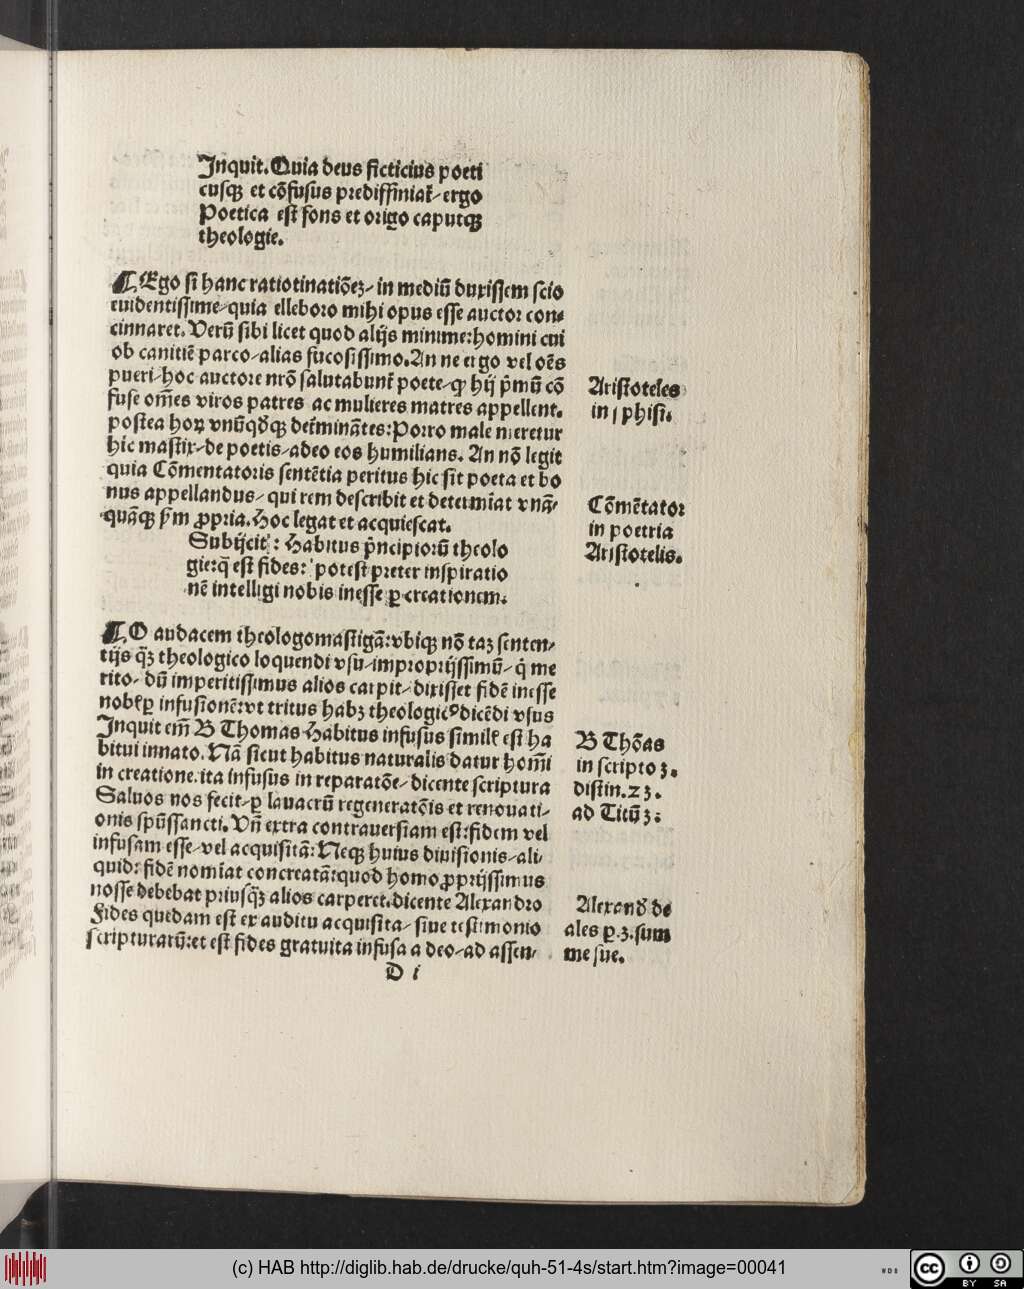 Inquit. Quia deus ficticius poeti
cusqꝫ et cōfusus prediffiniat̄/ergo
Poetica est fons et origo caputqꝫ
theologie.
¶ Ego si hanc ratiotinatiōeꝫ/in mediū duxissem scio
euidentissime/quia elleboro mihi opus esse auctor con⸗
cinnaret. Verū sibi licet quod alijs minime: homini cui
ob canitiē parco/alias fucosissimo. An ne ergo vel oēs
pueri/hoc auctore nr̄o salutabunt̄ poete/ꝙ hij p̄mū cō
fuse om̄es viros patres ac mulieres matres appellent.
postea hoꝝ vnūqḋqꝫ det̄minātes: Porro male meretur
hic mastix/de poetis/adeo eos humilians. An nō legit
quia Cōmentatoris sentētia peritus hic sit poeta et bo
nus appellandus/qui rem describit et determīat vnā⸗
quāqꝫ ẜm ꝓpria. Hoc legat et acquiescat.
Aristoteles
in ȷ phisi.
Cōmētator
in poetria
Aristotelis.
Subijcit: Habitus p̄ncipiorū theolo
gie: q̄ est fides: potest preter inspiratio
nē intelligi nobis inesse ꝑ creationem.
¶ O audacem theologomastigā: vbiqꝫ nō taꝫ senten/
tijs q̄ꝫ theologico loquendi vsu/improprijssimū/q̇ me
rito/dū imperitissimus alios carpit/dixisset fidē inesse
nobis ꝑ infusionē: vt tritus habꝫ theologicꝰ dicēdi vsus
Inquit em̄ B Thomas Habitus infusus simil̛ est ha
bitui innato. Nā sicut habitus naturalis datur homī
in creatione. ita infusus in reparatōe/dicente scriptura
Saluos nos fecit/ꝑ lauacrū regeneratōis et renouati⸗
onis spūssancti. Vn̄ extra contrauersiam est: fidem vel
infusam esse/vel acquisitā: Neqꝫ huius diuisionis/ali⸗
quid: fidē nomīat concreatā: quod homo ꝓprijssimus
nosse debebat priusq̄ꝫ alios carperet. dicente Alexandro
Fides quedam est ex auditu acquisita/siue testimonio
scripturarū: et est fides gratuita infusa a deo/ad assen/
B Thōas
in scripto 3.
distin. 23.
ad Titū 3:
Alexanḋ de
ales ꝑ. 3. sum
me sue.
D i
(c) HAB http://diglib.hab.de/drucke/quh-51-4s/start.htm?image=00041
WDB
cc
BY SA